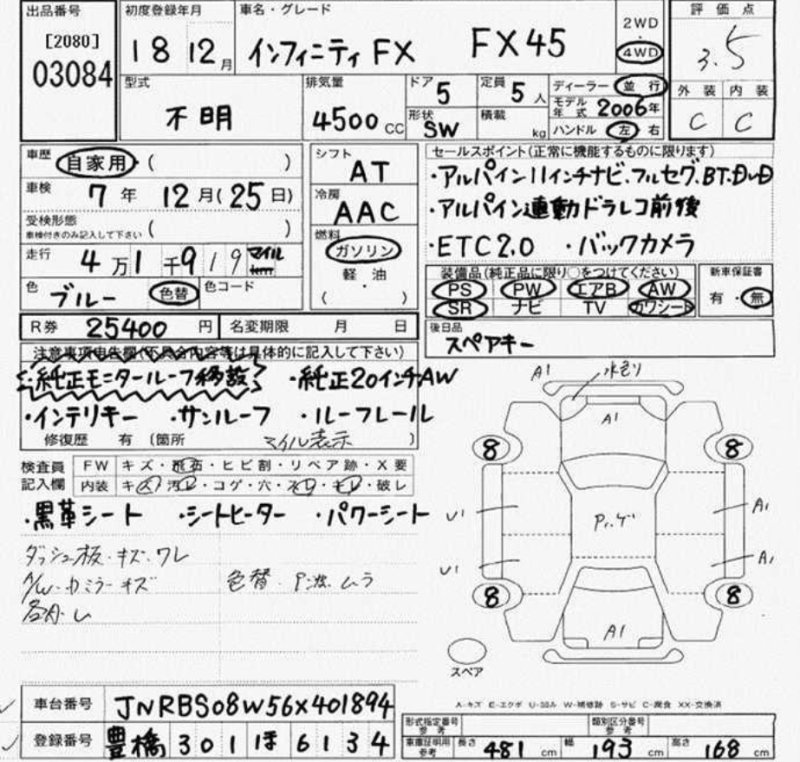 出品番号
[2080]
03084
初度登録年月
18 12月
車名・グレード
インフィニティFX FX45
2WD
・
4WD
評価点
3.5
型式
不明
排気量
4500cc
ドア 5
形状 SW
定員 5人
積載 kg
ディーラー 並行
モデル年式 2006年
ハンドル 左 右
外装 内装
C C
車歴 自家用・( )
車検 7年 12月(25日)
受検形態
車検付きのみ記入して下さい ( )
走行 4万1千919 マイル km
色 ブルー 色替 色コード
シフト
AT
冷房
AAC
燃料
ガソリン
軽・油
( )
セールスポイント(正常に機能するものに限ります)
・アルパイン11インチナビ、フルセグ、BT、DVD
・アルパイン連動ドラレコ前後
・ETC2.0 ・バックカメラ
装備品(純正品に限り○をつけてください)
PS PW エアB AW
SR ナビ TV カワシート
新車保証書
有・無
R券 25400円 名変期限 月 日
後日品
スペアキー
注意事項申告欄(不具合内容等は具体的に記入して下さい)
・純正モニタールーフ移設 ・純正20インチAW
・インテリキー ・サンルーフ ・ルーフレール
修復歴 有 〔箇所 マイル表示 〕
検査員記入欄
FW キズ・飛石・ヒビ割・リペア跡・X要
内装 キズ・汚レ・コゲ・穴・・キレ・破レ
・黒革シート ・シートヒーター ・パワーシート
ダッシュ板・キズ・ワレ
A/W・ミラーキズ 色替・ムラ
A1
A1
8 8
U1 A1
U1 A1
8 8
A1
スペア
A-キズ E-エクボ U-凹み W-補修跡 S-サビ C-腐食 XX-交換済
車台番号 JNRBS08W56X401894
登録番号 豊橋 301 ほ 6134
形式指定番号 参考
類別区分番号 参考
車庫証明用参考 長さ 481cm 幅 193cm 高さ 168cm